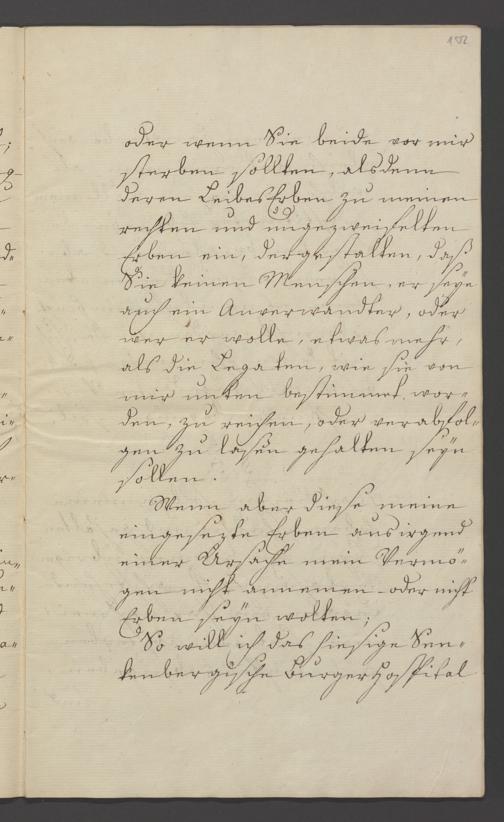 152
oder wenn Sie beide vor mir
sterben sollten, alsdenn
deren LeibesErben zu meinen
rechten und ungezweifelten
Erben ein, dergestalten, daß
Sie keinen Menschen, er seye
auch ein Anverwandter, oder
wer er wolle, etwas mehr,
als die Legaten, wie sie von
mir unten bestimmet wor-
den, zu reichen, oder verabfol-
gen zu laßen gehalten seyn
sollen.
Wenn aber diese meine
eingesezte Erben aus irgend
einer Ursache mein Vermö-
gen nicht annemen oder nicht
Erben seyn wolten;
So will ich das hiesige Sen-
kenbergische Burger Hospital